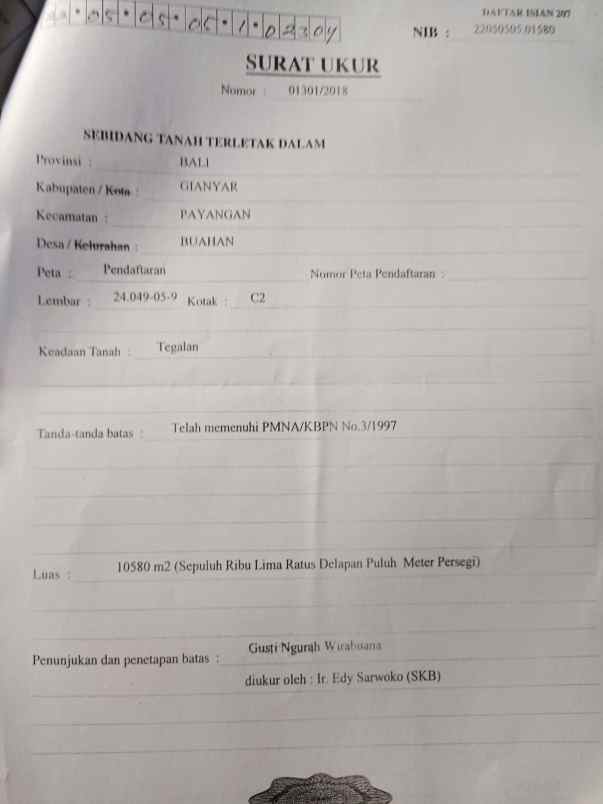 DAFTAR ISIAN 207
05 • 05 • 05 • 1 • 02304
NIB : 22050505.01580
SURAT UKUR
Nomor : 01301/2018
SEBIDANG TANAH TERLETAK DALAM
Provinsi : BALI
Kabupaten / Kota : GIANYAR
Kecamatan : PAYANGAN
Desa / Kelurahan : BUAHAN
Peta : Pendaftaran Nomor Peta Pendaftaran :
Lembar : 24.049-05-9 Kotak : C2
Keadaan Tanah : Tegalan
Tanda-tanda batas : Telah memenuhi PMNA/KBPN No.3/1997
Luas : 10580 m2 (Sepuluh Ribu Lima Ratus Delapan Puluh Meter Persegi)
Penunjukan dan penetapan batas : Gusti Ngurah Wirabuana
diukur oleh : Ir. Edy Sarwoko (SKB)